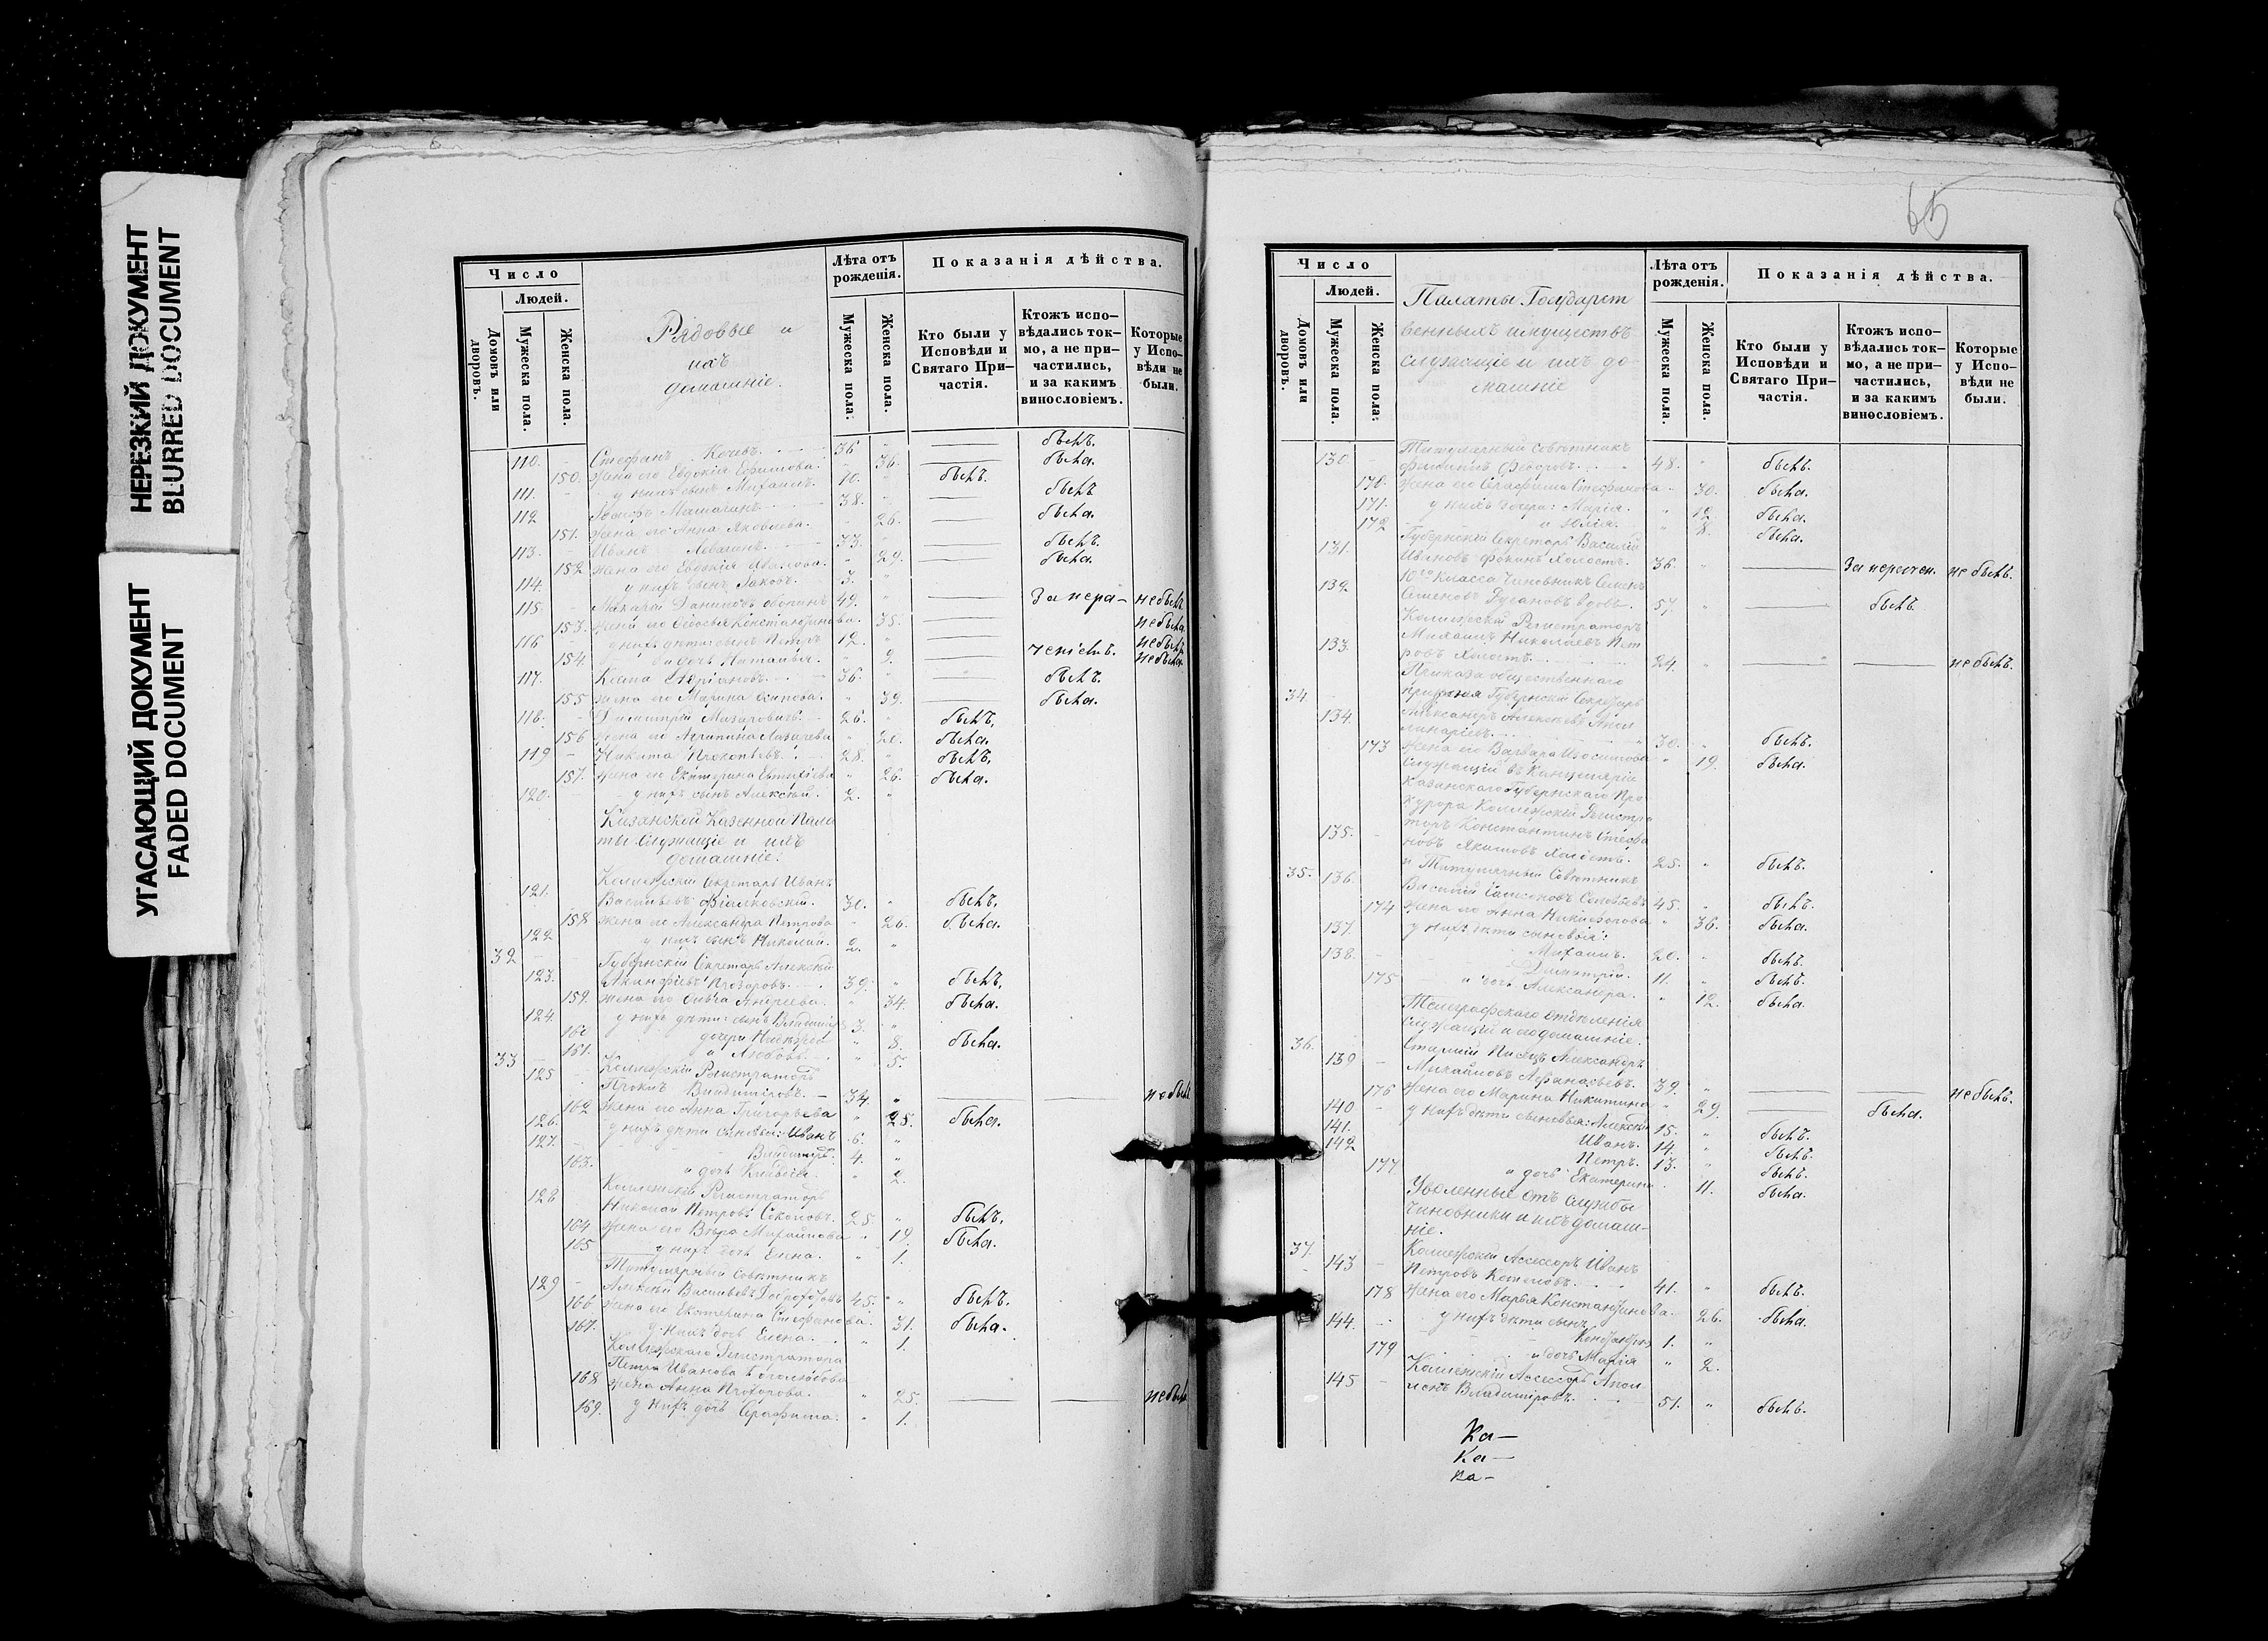 НЕРЕЗКИЙ ДОКУМЕНТ
BLURRED DOCUMENT
УГАСАЮЩИЙ ДОКУМЕНТ
FADED DOCUMENT
Число
Людей.
Домовъ или дворовъ.
Мужеска пола.
Женска пола.
Рядовые и
ихъ
домашніе.
Лѣта отъ рожденія.
Мужеска пола.
Женска пола.
Показанія дѣйства.
Кто были у Исповѣди и Святаго Причастія.
Ктожъ исповѣдались токмо, а не причастились, и за какимъ винословіемъ.
Которые у Исповѣди не были.
110. Стефанъ Кочевъ. 36 былъ.
150. жена его Евдокія Ефимова. 36. была.
111. у нихъ сынъ Михаилъ. 10. былъ.
112 38. былъ
151. жена его Анна Яковлева. 26. была.
113. Иванъ 33. былъ.
152 жена его Евдокія 29. была.
114. у нихъ сынъ Іаковъ. 3.
115. Макарій Даниловъ 49. За нера- не былъ
153. жена его Ѳеодосья Константинова. 35. не была
116 у нихъ дѣти: сынъ Петръ 12. не былъ
154. и дочь Наталья. 9. ченіемъ. не была
117. Косма 36. былъ.
155 жена его Марина Осипова. 39. была.
118. Димитрій 26. былъ.
156 жена его Агрипина Лазарева 20. была.
119 Никита Прокопьевъ. 28. былъ.
157. жена его Екатерина Евтихіева 26. была.
120. у нихъ сынъ Алексѣй. 2.
Казанской Казенной Пала
ты Служащіе и ихъ
домашніе:
121. Коллежскій Секретарь Иванъ
Васильевъ Фіалковскій. 30. былъ.
158 жена его Александра Петрова 26. была.
122 у нихъ сынъ Николай. 2.
32 Губернскій Секретарь Алексѣй
123. 39. былъ.
159. жена его Ольга Андреева. 34. была.
124. у нихъ дѣти: сынъ Владиміръ 3.
160 дочери Надежда 8. была.
161. и Любовь. 5.
33 125 Коллежскій Регистраторъ
Проклъ Владиміровъ. 34. не былъ
162 жена его Анна Григорьева 25. была.
126. у нихъ дѣти сыновья: Иванъ 6.
127. Владиміръ. 4.
163. и дочь Клавдія. 2.
128 Коллежскій Регистраторъ
Николай Петровъ Соколовъ. 25. былъ.
164 жена его Вѣра Михайлова 19. была.
165 у нихъ дочь Елена. 1.
Титулярный Совѣтникъ
129 Алексѣй Васильевъ Доброхотовъ 45. былъ.
166 жена его Екатерина Стефанова. 31. была.
167. у нихъ дочь Елена. 1.
Коллежскаго Регистратора
Петра Иванова Боголюбова
168 жена Анна Прохорова. 25. не была
169. у нихъ дочь Серафима. 1.
65
Число
Людей.
Домовъ или дворовъ.
Мужеска пола.
Женска пола.
Палаты Государст
венныхъ имуществъ
служащіе и ихъ до-
машніе
Лѣта отъ рожденія.
Мужеска пола.
Женска пола.
Показанія дѣйства.
Кто были у Исповѣди и Святаго Причастія.
Ктожъ исповѣдались токмо, а не причастились, и за какимъ винословіемъ.
Которые у Исповѣди не были.
Титулярный Совѣтникъ
130 Филиппъ Ѳедоровъ. 48. былъ.
170. жена его Серафима Стефанова 30. была.
171. у нихъ дочери: Марія. 12. была.
172 и Юлія. 8. была.
Губернскій Секретарь Василій
131. Ивановъ Фокинъ Холостъ. 36. За нерачен. не былъ.
10го Класса Чиновникъ Семенъ
132 Семеновъ Русановъ вдовъ. 57. былъ.
Коллежскій Регистраторъ
133. Михаилъ Николаевъ Пет
ровъ Холостъ. 24. не былъ.
34 Приказа общественнаго
призрѣнія Губернскій Секретарь
134. Александръ Алексѣевъ Апол
линаріевъ. 30. былъ.
173 жена его Варвара 19. была.
Служащій въ Канцеляріи
Казанскаго Губернскаго Про
курора Коллежскій Регистра
135. торъ Константинъ Степа
новъ Якимовъ Холостъ. 25. былъ.
35. 136. и Титулярный Совѣтникъ
Василій Соловьевъ 45. былъ.
174 жена его Анна Никифорова 36. была.
137. у нихъ дѣти сыновья:
Михаилъ. 20. былъ.
138. Димитрій. 11. былъ.
175 и дочь Александра. 12. была.
Телеграфскаго отдѣленія
служащій и его домашніе.
36. 139 Старшій Писецъ Александръ
Михайловъ Аѳанасьевъ. 39. не былъ.
176 жена его Марина Никитина 29. была.
140 у нихъ дѣти сыновья: Алексѣй 15. былъ.
141. Иванъ. 14. былъ.
142 Петръ. 13. былъ.
177 и дочь Екатерина 11. была.
Уволенные отъ службы
Чиновники и ихъ домаш-
ніе.
37. 143 Коллежскій Ассессоръ Иванъ
Петровъ Котеловъ. 41. былъ.
178 жена его Марья Константинова. 26. была.
144. у нихъ дѣти сынъ
1.
179 и дочь Марія 2.
145 Коллежскій Ассессоръ Апол
лонъ Владиміровъ. 51. былъ.
Ка-
Ка-
Ка-